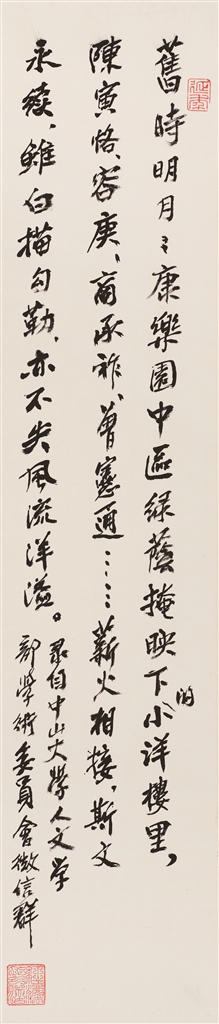 舊時明月〻康樂園中區綠蔭掩映下的小洋樓里，
陳寅恪、容庚、商承祚、曾憲通……薪火相接，斯文
永續，雖白描勾勒，亦不失風流洋溢。
录自中山大學人文学
部學術委員會微信群